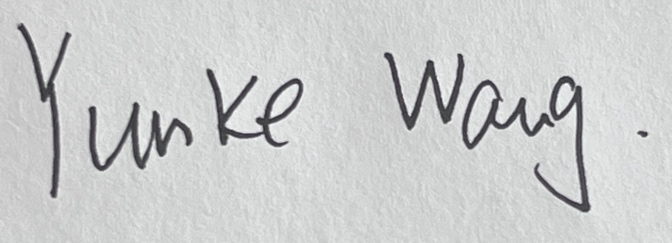 Yunke Wang.